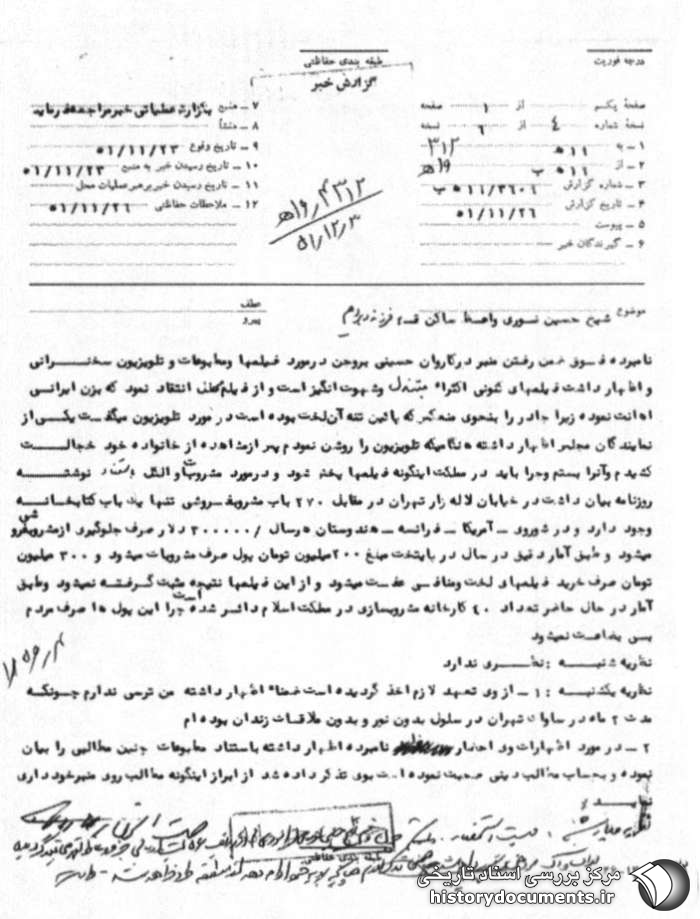 درجه فوریت
طبقه بندی حفاظتی
گزارش خبر
صفحهٔ یکم از ۱ صفحه
نسخهٔ شماره ٤ از ٦ نسخه
۱ ـ به ۳۱۲
۲ ـ از ۵۱۱ ب
۳ ـ شماره گزارش ۵۱۱/۳۶۰۶ ب
٤ ـ تاریخ گزارش ۵۱/۱۱/۲۶
۵ ـ پیوست
٦ ـ گیرندگان خبر
۷ ـ منبع بگزارش عملیاتی خبر مراجعه فرماید
۸ ـ منشأ
۹ ـ تاریخ وقوع ۵۱/۱۱/۲۳
۱۰ ـ تاریخ رسیدن خبر به منبع ۵۱/۱۱/۲۳
۱۱ ـ تاریخ رسیدن خبر برهبر عملیات محل
۱۲ ـ ملاحظات حفاظتی ۵۱/۱۱/۲۶
۴۳۱۲/ﻫ۱۹
۵۱/۱۲/۳
موضوع شیخ حسین نوری واعظ ساکن قم فرزند
عطف
پیرو
نامبرده فوق ضمن رفتن منبر در کاروان حسینی بروجن در مورد فیلمها و مطبوعات و تلویزیون سخنرانی
و اظهار داشت فیلمهای کنونی اکثراً مبتذل و شهوت انگیز است و از فیلم محلل انتقاد نمود که بزن ایرانی
اهانت نموده زیرا چادر را بنحوی منعکس که پائین تنه آن لخت بوده است در مورد تلویزیون میگفت یکی از
نمایندگان مجلس اظهار داشته هنگامیکه تلویزیون را روشن نمودم پس از مشاهده از خانواده خود خجالت
کشیدم و آنرا بستم و چرا باید در مملکت اینگونه فیلمها پخش شود و در مورد مشروبات و الکل نوشته
روزنامه بیان داشت در خیابان لاله زار تهران در مقابل ۲۷۰ باب مشروبفروشی تنها یک باب کتابخانه
وجود دارد و در شوروی ـ آمریکا ـ فرانسه ـ هندوستان هر سال /۳۰۰۰۰۰ دلار صرف جلوگیری از مشروبفروشی
میشود و طبق آمار دقیق در سال در پایتخت مبلغ ۲۰۰ میلیون تومان پول صرف مشروبات میشود و ۳۰۰ میلیون
تومان صرف خرید فیلمهای لخت و منافی عفت میشود و از این فیلمها نتیجه مثبت گرفته نمیشود و طبق
آمار در حال حاضر تعداد ۴۰ کارخانه مشروبسازی در مملکت اسلام دائر شده است چرا این پول ها صرف مردم
بی بضاعت نمیشود
نظریه شنبه : نظری ندارد
نظریه یکشنبه : ۱ ـ از وی تعهد لازم اخذ گردیده است ضمناً اظهار داشته من ترسی ندارم چونکه
مدت ۲ ماه در ساواک تهران در سلول بدون نور و بدون ملاقات زندان بوده ام
۲ ـ در مورد اظهارات وی احضار نامبرده اظهار داشته باستناد مطبوعات چنین مطالبی را بیان
نموده و بحساب مطالب دینی صحبت نموده است بوی تذکر داده شد از ابراز اینگونه مطالب روی منبر خودداری
نماید
طبقه بندی حفاظتی
مرکز بررسی اسناد تاریخی
historydocuments.ir